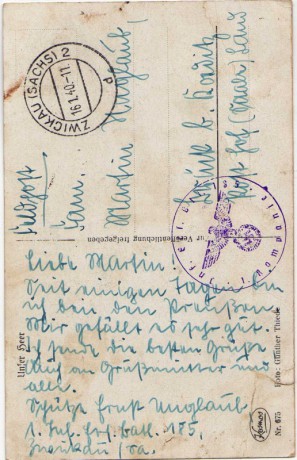 ZWICKAU (SACHS) 2
16.1.40.-11
d
Feldpost
Fam.
Martin Unglaub
Zur Veröffentlichung freigegeben
Liebe Martin.
Seit einigen Tagen bin
ich bei den Preußen
Mir gefällt es sehr gut.
Ich sende die besten Grüße
auch an Großmutter und
alle.
Schütze Ernst Unglaub
1. Inf. Ers. Batl. 185,
Zwickau / Sa.
Unser Heer
Foto: Günther Thiede
Nr. 675